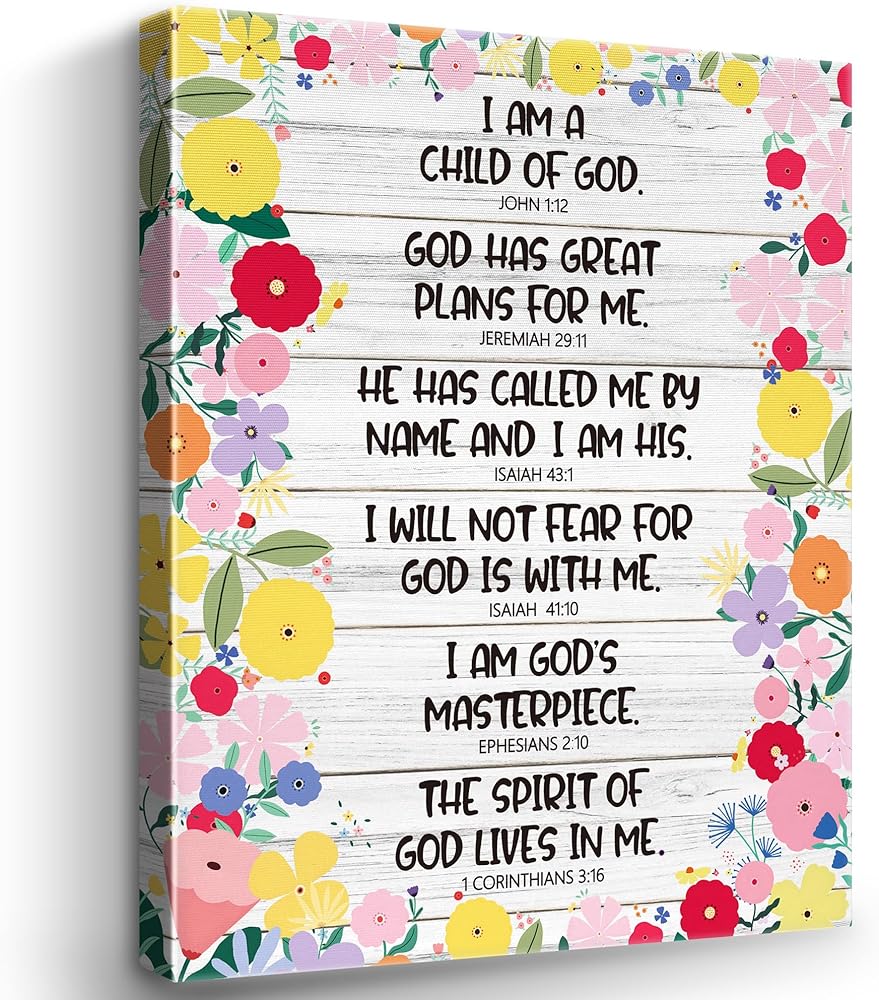 I AM A
CHILD OF GOD.
JOHN 1:12
GOD HAS GREAT
PLANS FOR ME.
JEREMIAH 29:11
HE HAS CALLED ME BY
NAME AND I AM HIS.
ISAIAH 43:1
I WILL NOT FEAR FOR
GOD IS WITH ME.
ISAIAH 41:10
I AM GOD'S
MASTERPIECE.
EPHESIANS 2:10
THE SPIRIT OF
GOD LIVES IN ME.
1 CORINTHIANS 3:16